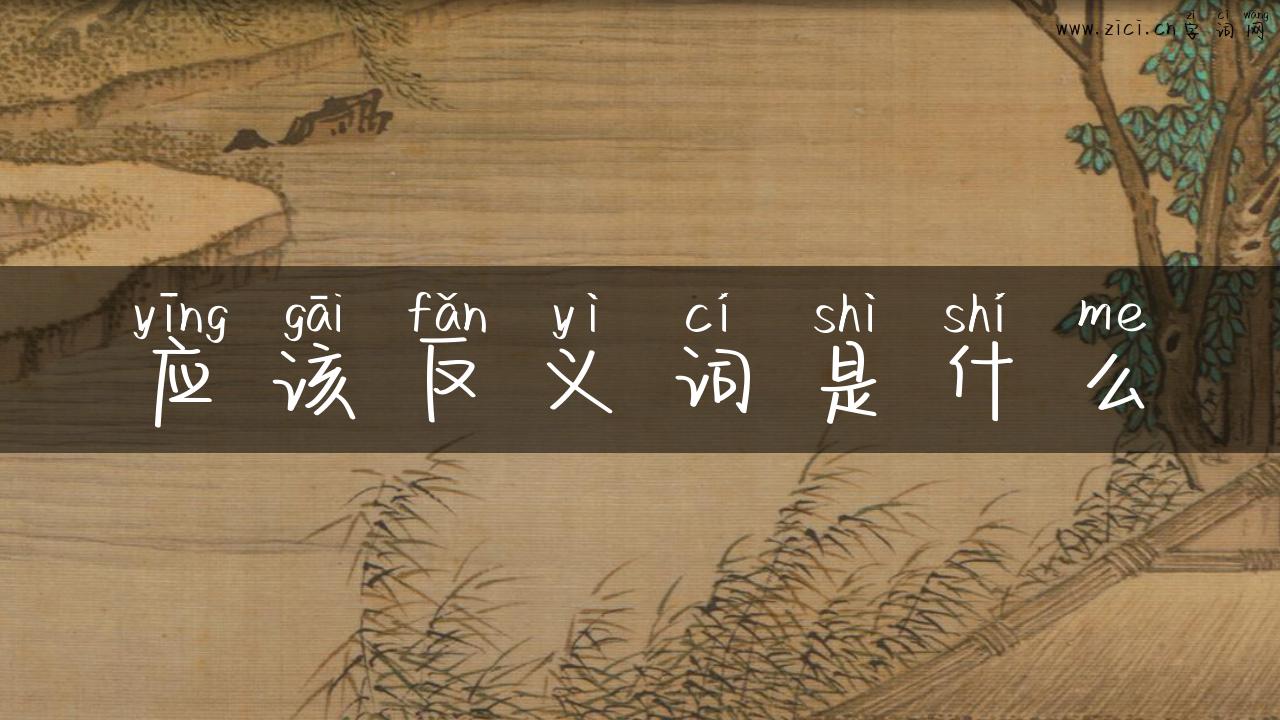 zì cí wǎng
www.zici.cn字词网
yīng gāi fǎn yì cí shì shí me
应该反义词是什么